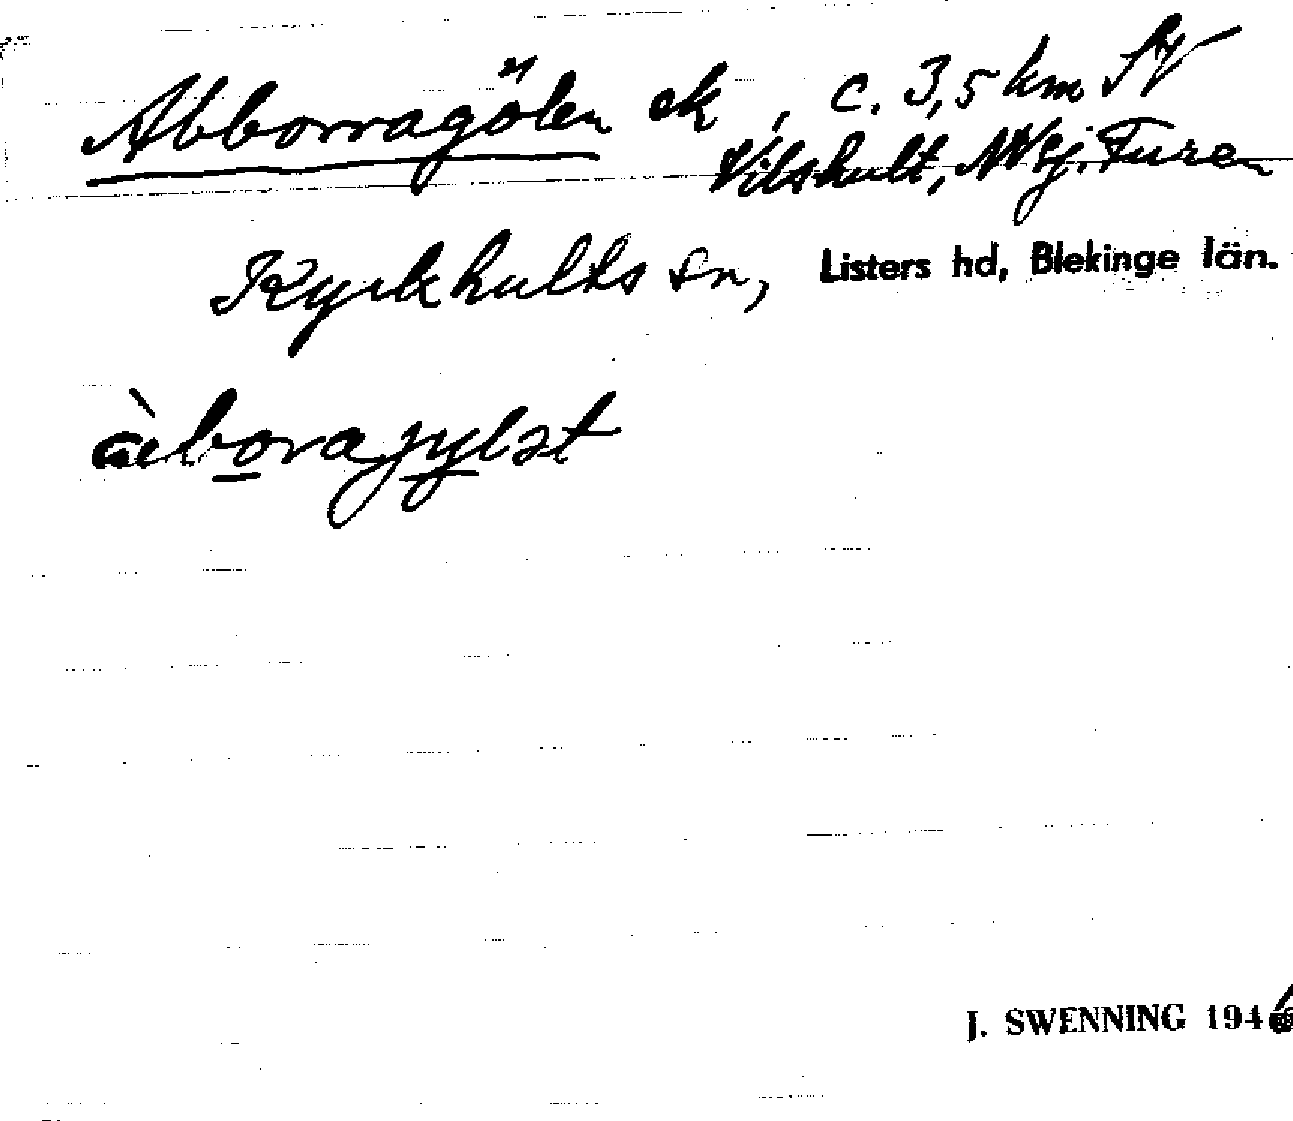 Abborragölen ek, c. 3,5 km SV
Vilshult, NV sj. Furen
Kyrkhults sn, Listers hd, Blekinge län.
J. SWENNING 1946